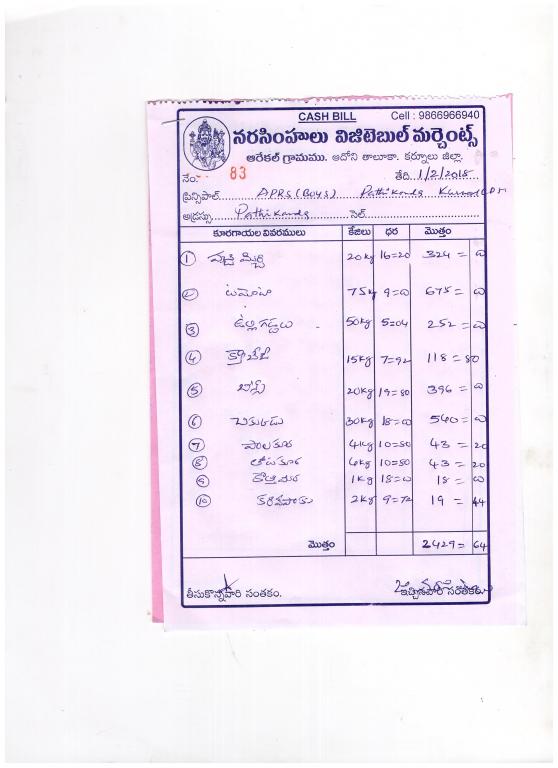 CASH BILL Cell : 9866966940
నరసింహులు విజిటెబుల్ మర్చెంట్స్
ఆరేకల్ గ్రామము. ఆదోని తాలూకా. కర్నూలు జిల్లా.
నెం. 83 తేది. 1/2/2018
ప్రిన్సిపాల్ APRS (BOYS) Pathikonda Kurnool Dt
అడ్రస్సు Pathikonda సెల్.
కూరగాయల వివరములు కేజీలు ధర మొత్తం
1 పచ్చి మిర్చి 20kg 16=20 324 = 0
2 టమోటా 75kg 9=0 675 = 0
3 ఉల్లిగడ్డలు 50kg 5=04 252 = 0
4 క్యాబేజీ 15kg 7=92 118 = 80
5 బీన్స్ 20kg 19=80 396 = 0
6 30kg 18=0 540 = 0
7 పాలకూర 4kg 10=80 43 = 20
8 తోటకూర 4kg 10=80 43 = 20
9 కొత్తిమీర 1kg 18=0 18 = 0
10 కరివేపాకు 2kg 9=72 19 = 44
మొత్తం 2429 = 64
తీసుకొన్నవారి సంతకం. ఇచ్చినవారి సంతకము